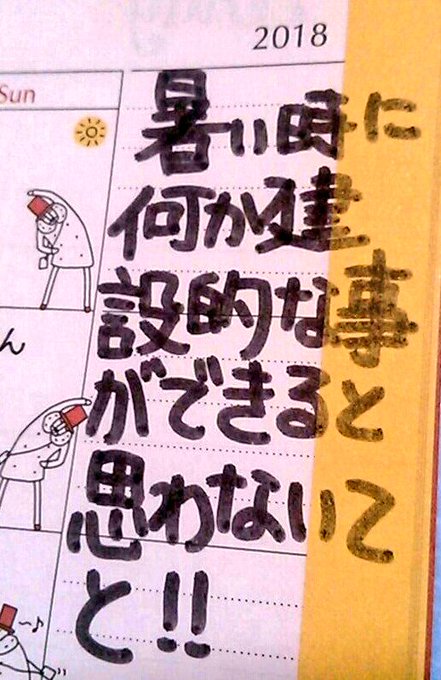 2018
Sun
暑い時に
何か建
設的な事
ができると
思わないて
と!!
ん